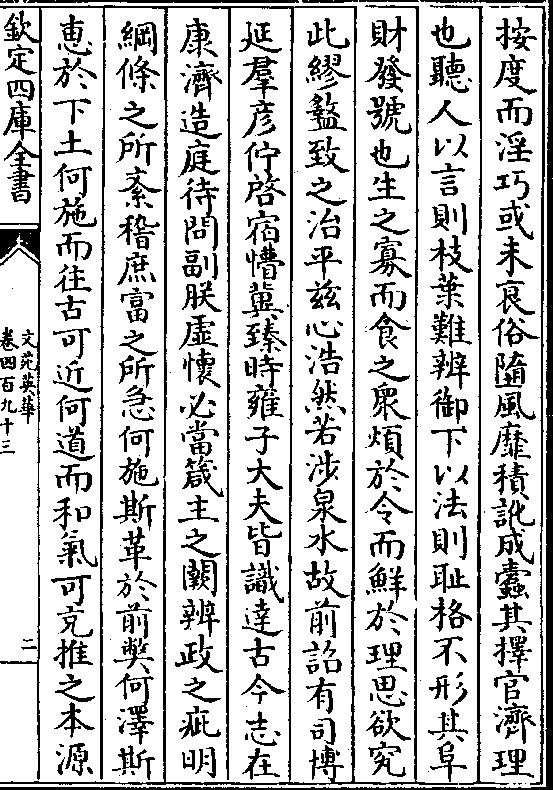 按度而淫巧或未衰俗隨風靡積訛成蠹其擇官濟理
也聽人以言則枝葉難辨御下以法則耻格不形其阜
財發號也生之寡而食之衆煩於令而鮮於理思欲究
此繆盭致之治平兹心浩然若涉泉水故前詔有司博
延羣彦佇啓宿懵冀臻時雍子大夫皆識達古今志在
康濟造庭待問副朕虚懷必當箴主之闕辨政之疵明
綱條之所紊稽庶富之所急何施斯革於前弊何澤斯
恵於下土何施而往古可近何道而和氣可充推之本源
欽定四庫全書
文苑英華
卷四百九十三
二